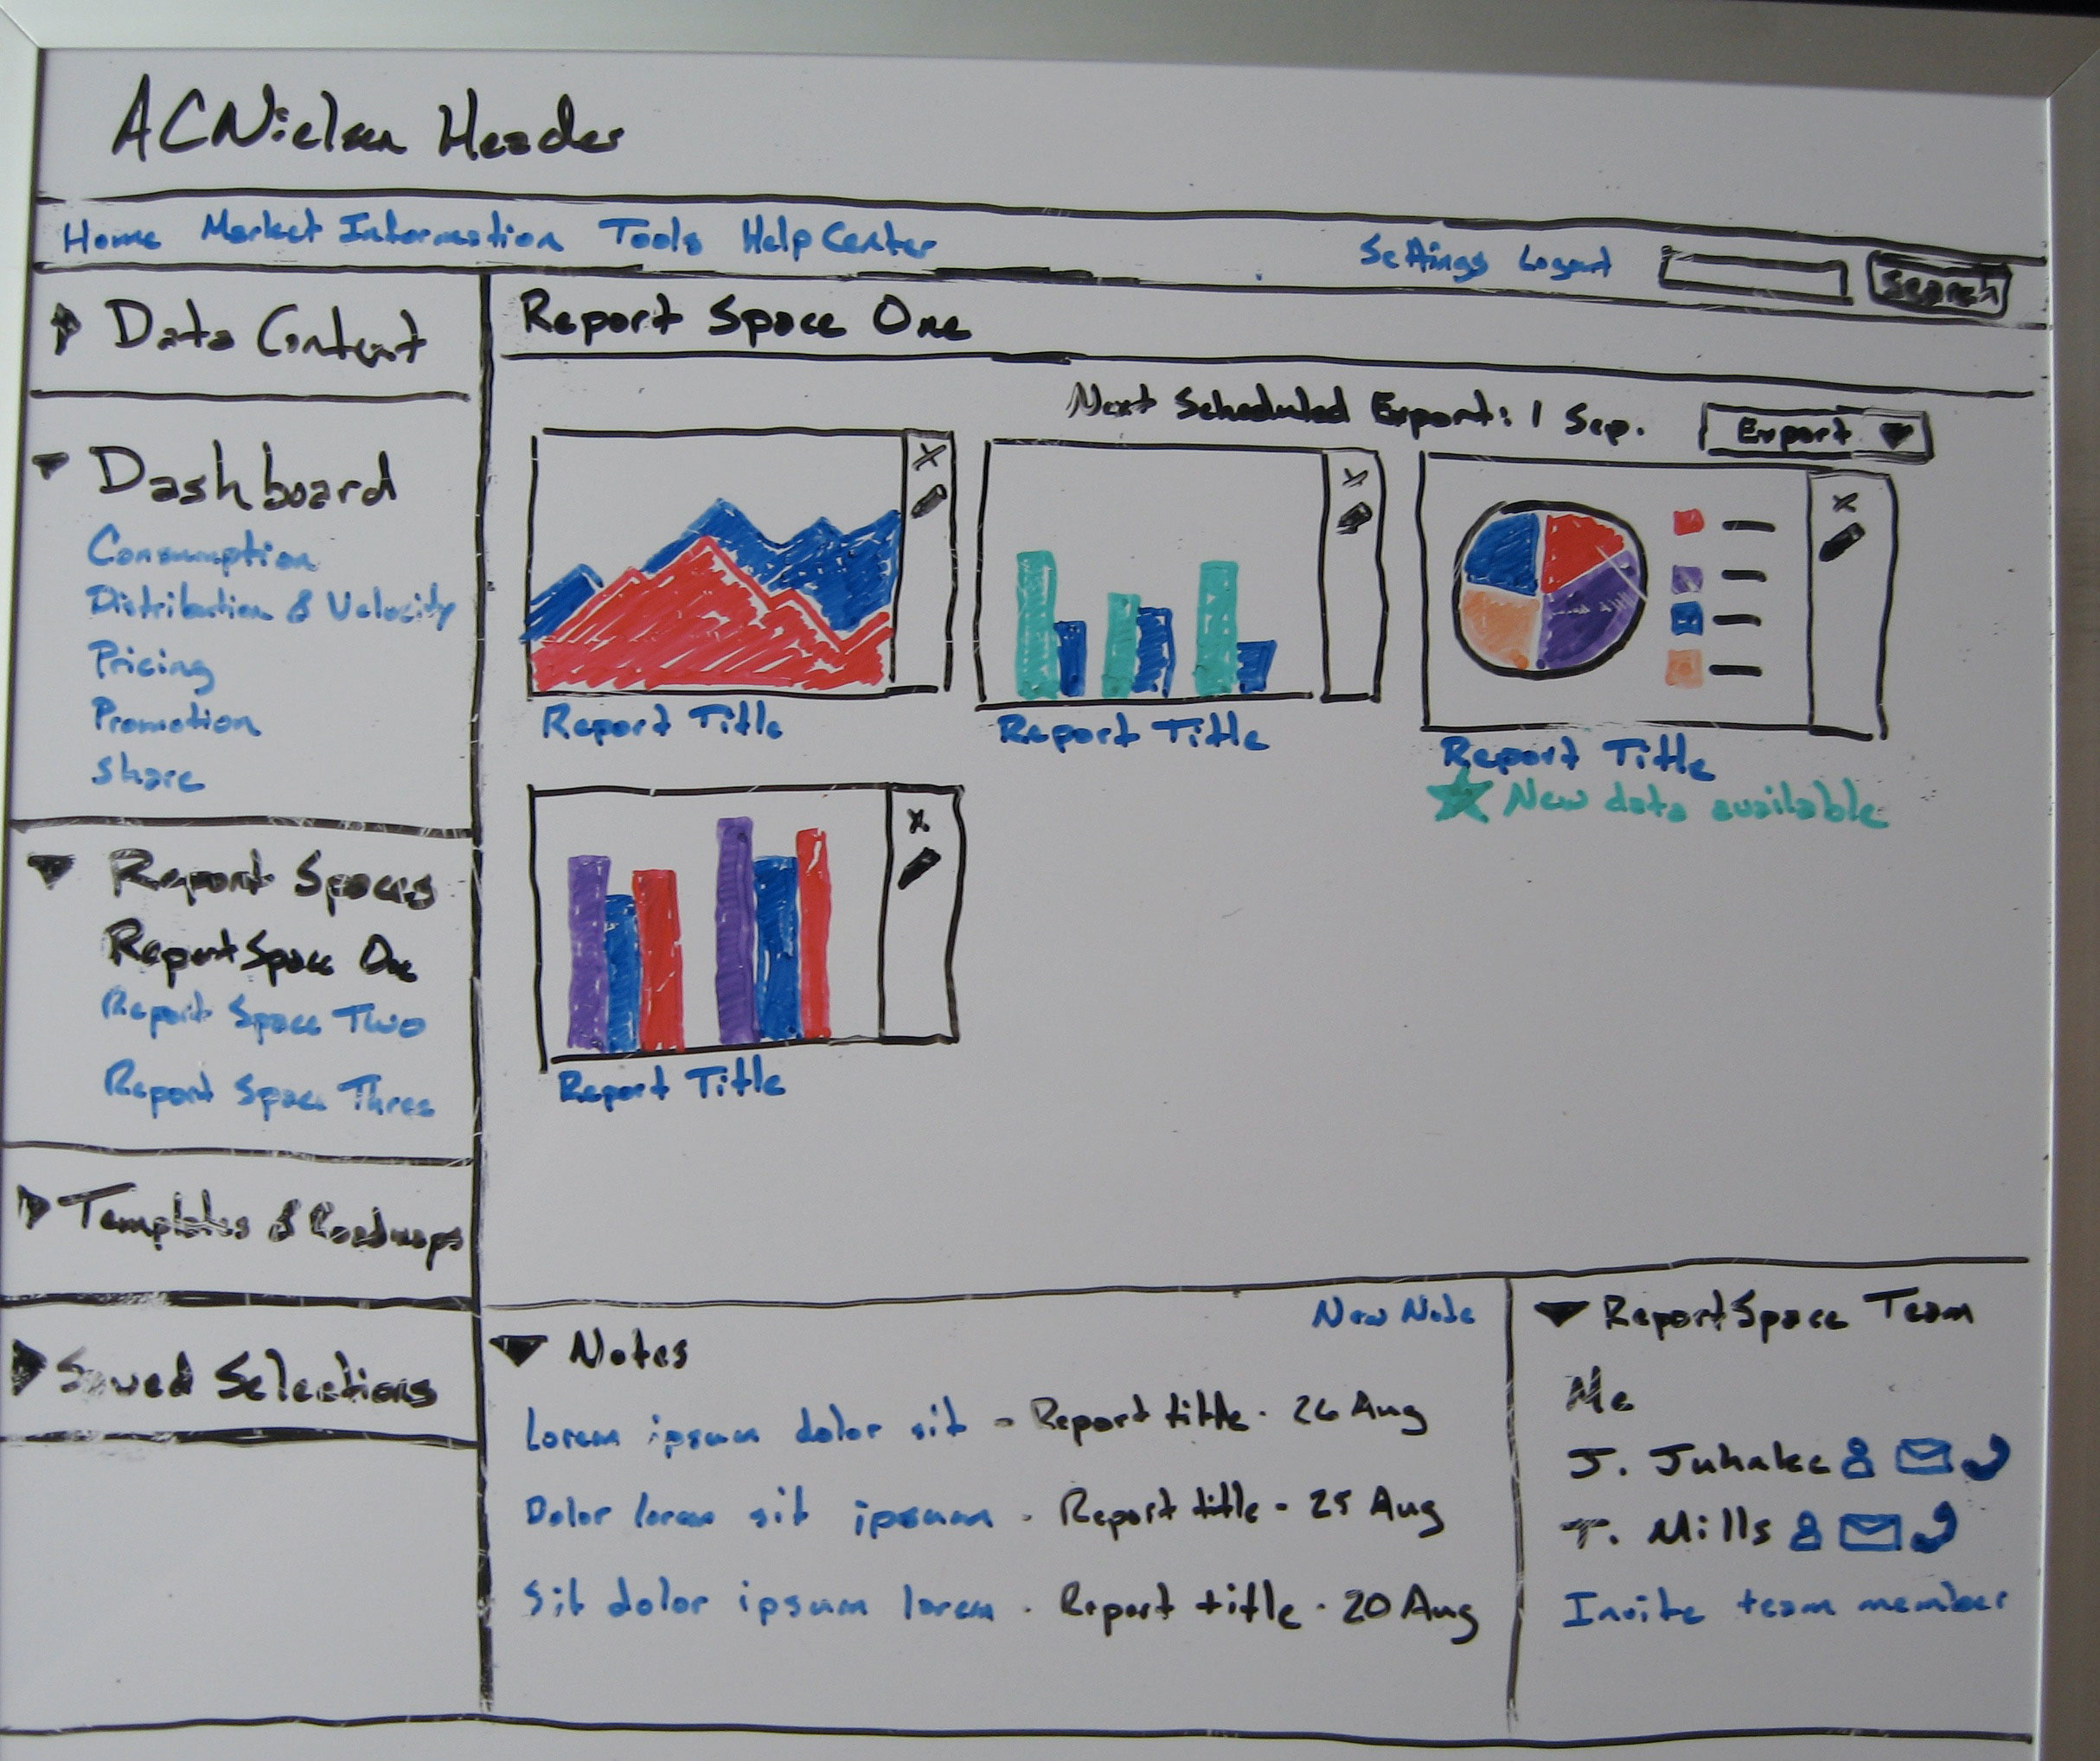 ACNielsen Header
Home Market Information Tools Help Center Settings Logout Search
Data Content
Dashboard
Consumption
Distribution & Velocity
Pricing
Promotion
Share
Report Spaces
Report Space One
Report Space Two
Report Space Three
Templates & Roadmaps
Saved Selections
Report Space One
Next Scheduled Export: 1 Sep. Export
X
X
X
Report Title
Report Title
Report Title
New data available
X
Report Title
Notes New Note
Lorem ipsum dolor sit - Report title - 26 Aug
Dolor lorem sit ipsum - Report title - 25 Aug
Sit dolor ipsum lorem - Report title - 20 Aug
Report Space Team
Me
J. Juhake
T. Mills
Invite team member